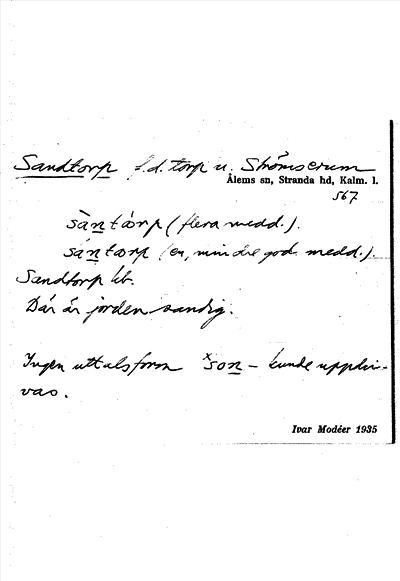 Sandtorp f.d. torp u. Strömserum
Ålems sn, Stranda hd, Kalm. l.
567
sàntårp (flera medd.).
sántårp (en, mindre god medd.).
Sandtorp kb.
Där är jorden sandig.
Ingen uttalsform *son- kunde uppdri-
vas.
Ivar Modéer 1935